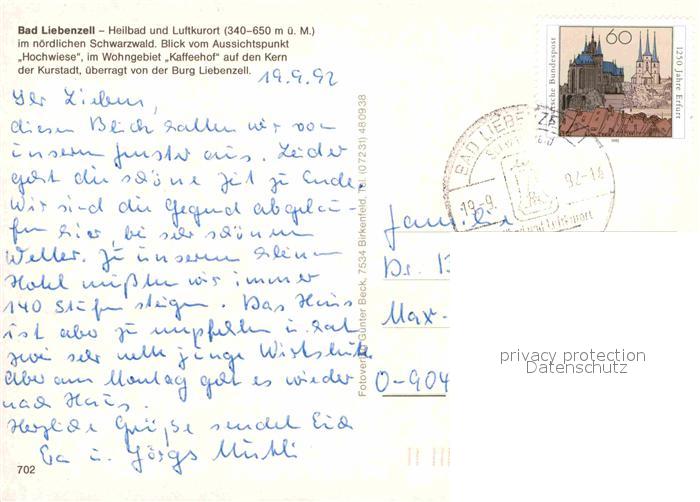 Bad Liebenzell – Heilbad und Luftkurort (340–650 m ü. M.)
im nördlichen Schwarzwald. Blick vom Aussichtspunkt
„Hochwiese“, im Wohngebiet „Kaffeehof“ auf den Kern
der Kurstadt, überragt von der Burg Liebenzell.
19.9.92
Ihr Lieben,
diesen Blick hatten wir von
unserem Fenster aus. Leider
geht die schöne Zeit zu Ende.
Wir sind die Gegend abgelau-
fen hier, bei sehr schönem
Wetter. Zu unserem kleinen
Hotel mußten wir immer
140 Stufen steigen. Das Haus
ist aber zu empfehlen u. hat
zwei sehr nette junge Wirtsleute.
Aber am Montag geht es wieder
nach Haus.
Herzliche Grüße sendet Euch
Eva u. Jörgs
702
Fotoverlag Günter Beck, 7534 Birkenfeld, Tel. (07231) 480938
60
Deutsche Bundespost
1250 Jahre Erfurt
1992
BAD LIEBENZELL
19.-9. 92-18
Familie
Dr.
Max-
O-904
privacy protection
Datenschutz